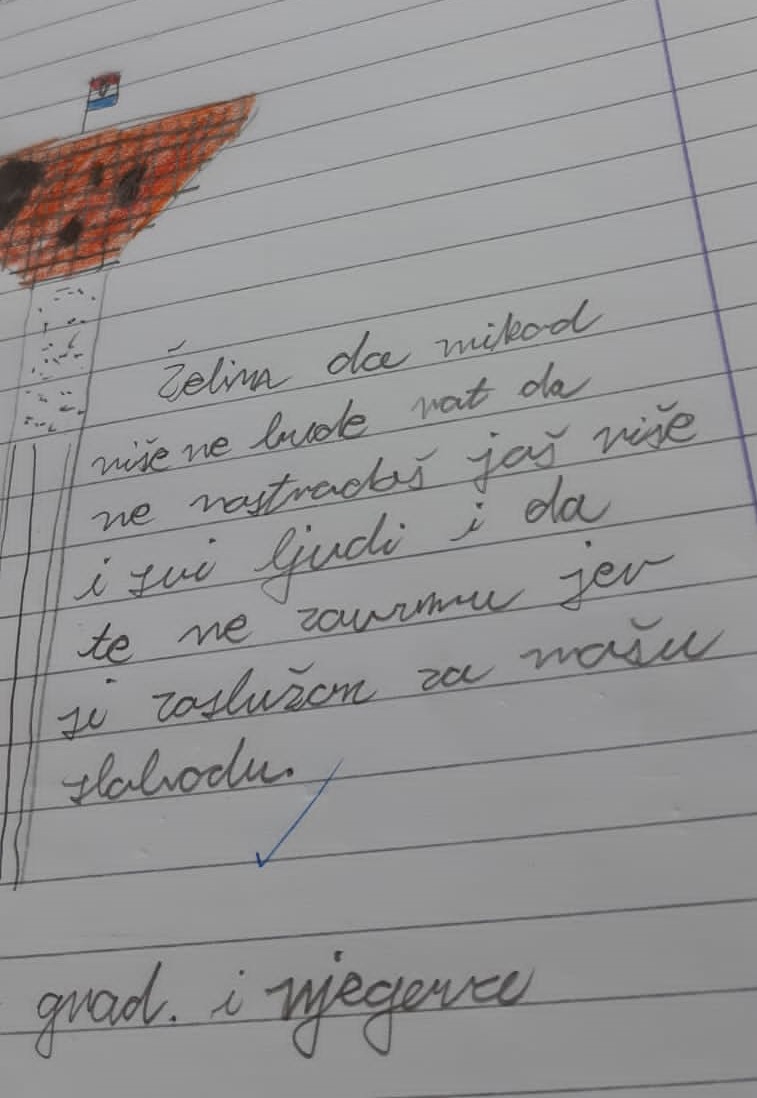 Želim da nikad
više ne bude rat da
ne nastradaš još više
i svi ljudi i da
te ne zauzmu jer
si zaslužan za našu
slobodu.
grad. i njegove